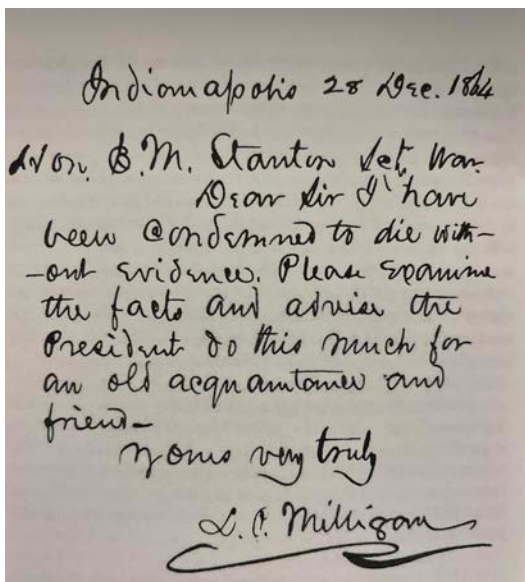 Indianapolis 28 Dec. 1864
Hon. E.M. Stanton Sct. War.
Dear Sir I have
been Condemned to die with-
-out evidence. Please examine
the facts and advise the
President do this much for
an old acquaintance and
friend-
Yours very truly
L. P. Milligan